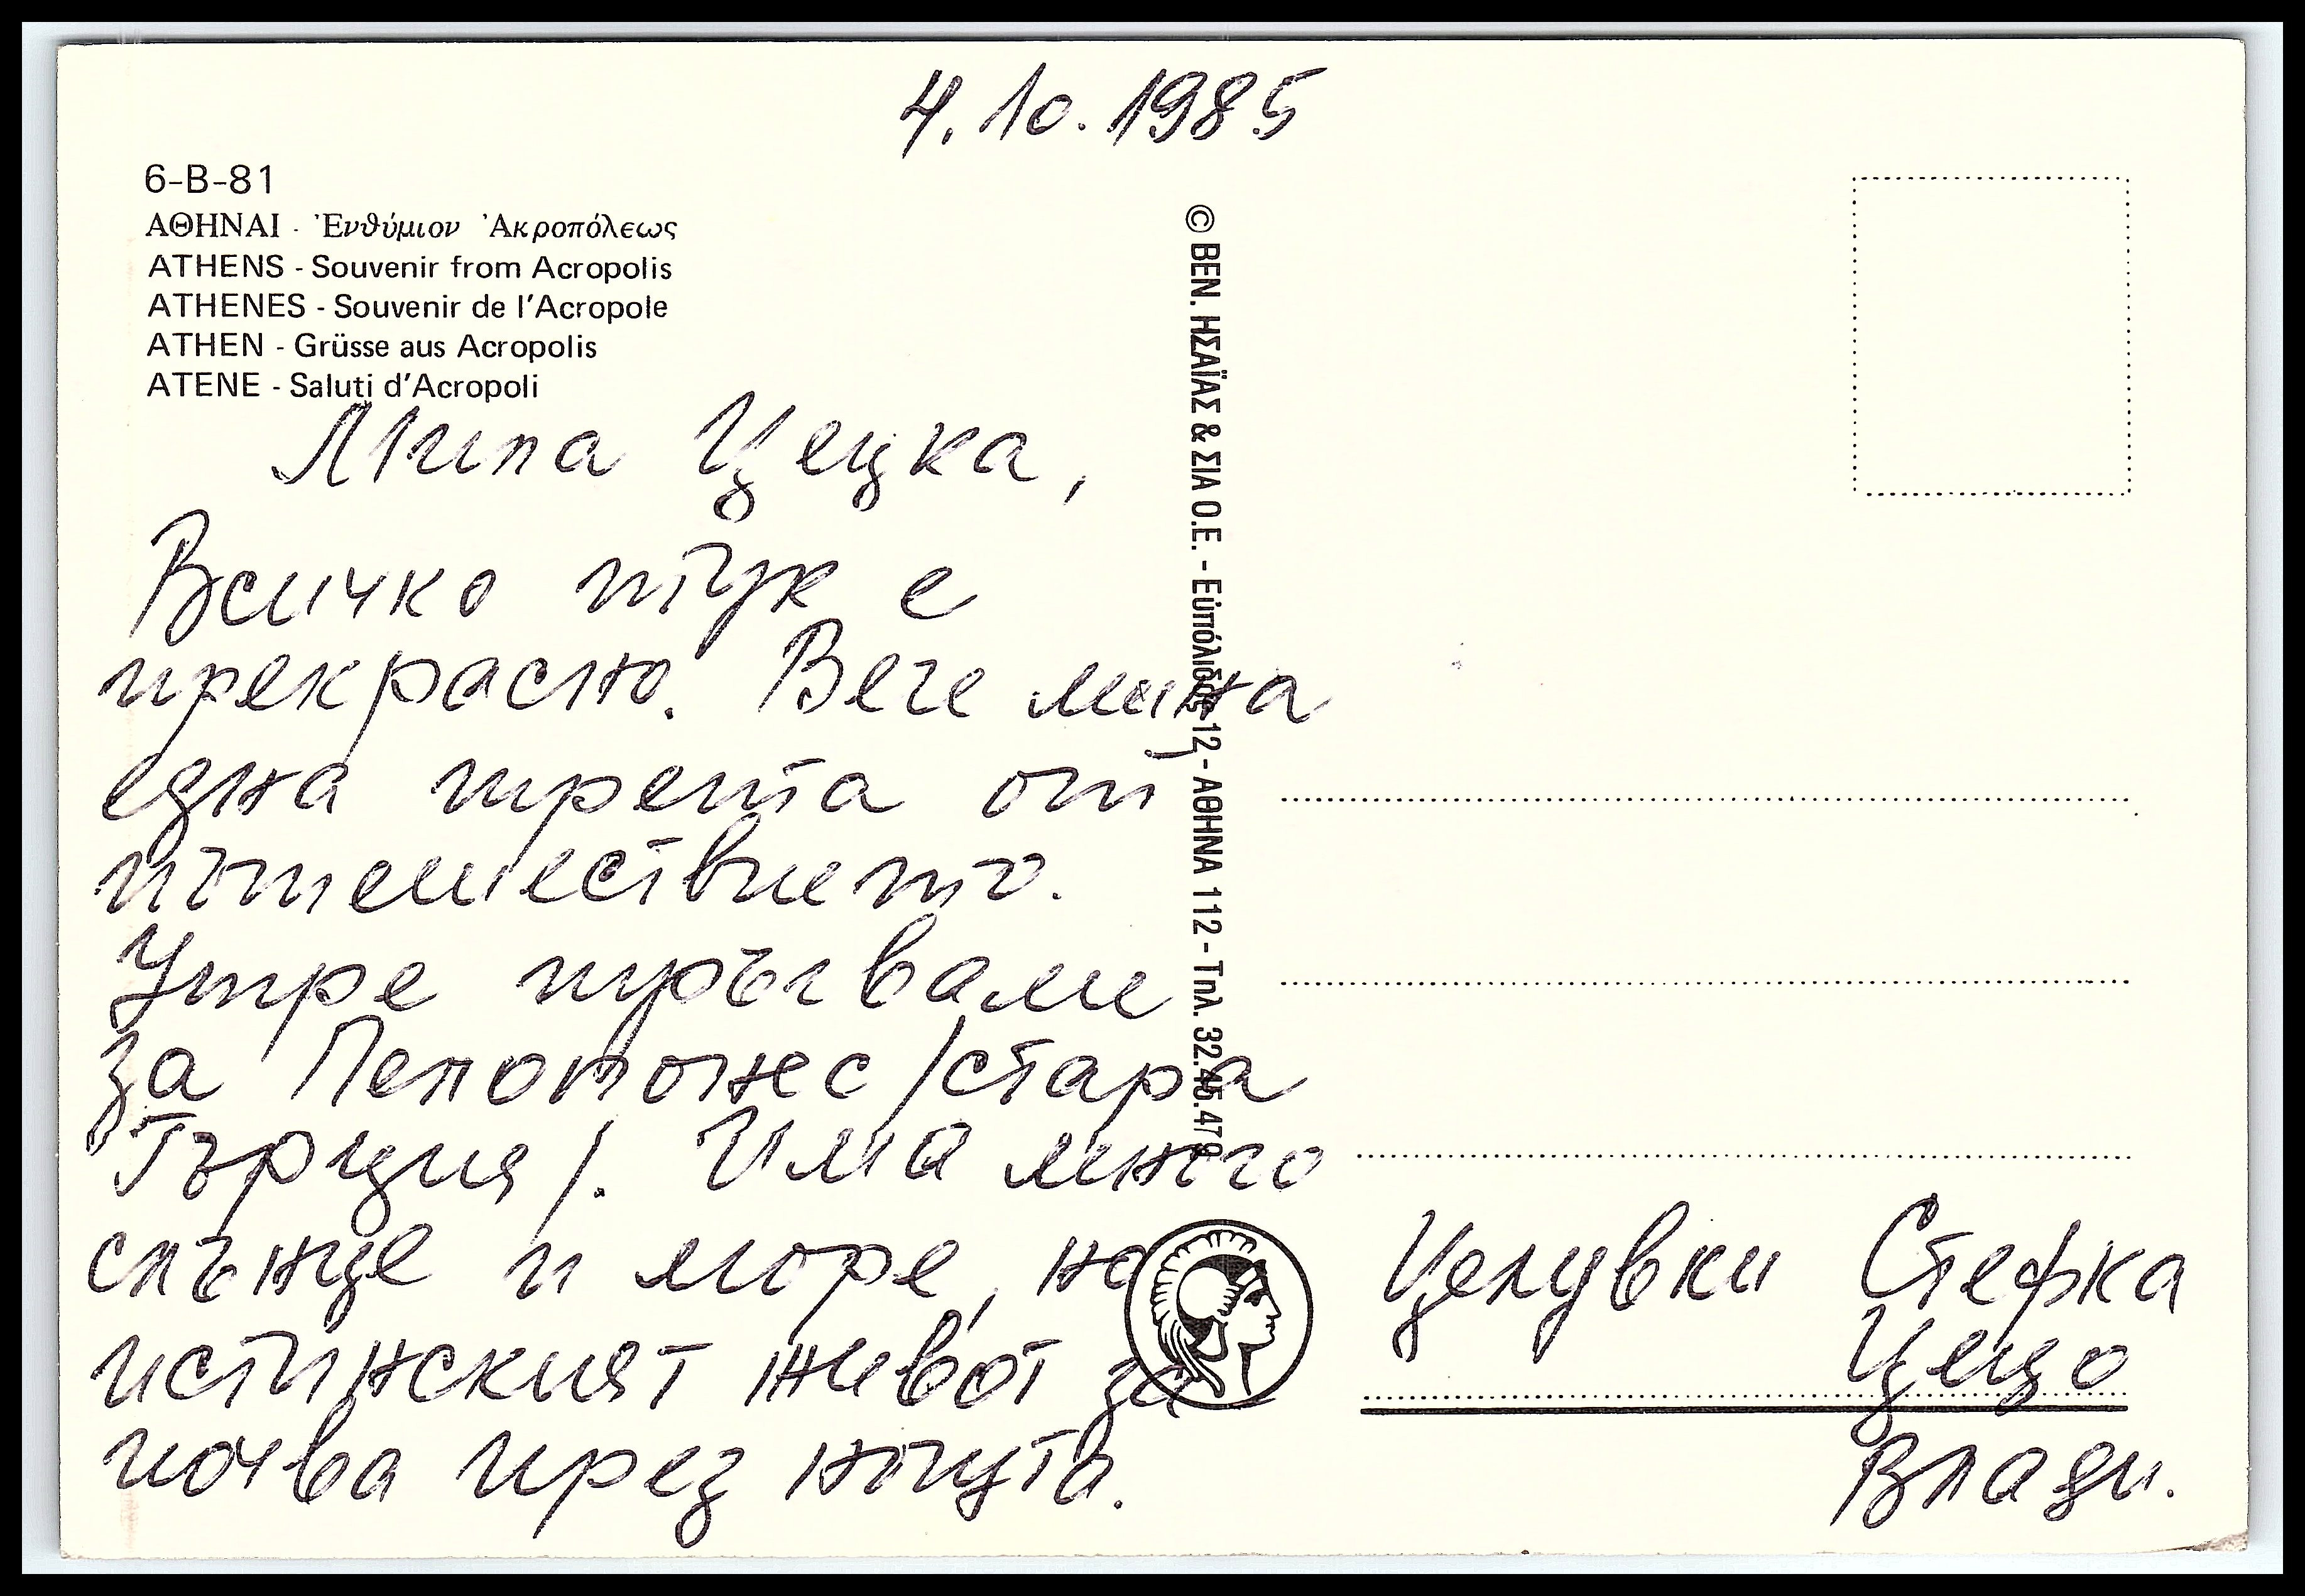 4.10.1985
6-B-81
ΑΘΗΝΑΙ - Ἐνθύμιον Ἀκροπόλεως
ATHENS - Souvenir from Acropolis
ATHENES - Souvenir de l'Acropole
ATHEN - Grüsse aus Acropolis
ATENE - Saluti d'Acropoli
Мила Цецка,
Всичко тук е
прекрасно. Вече мина
една трета от
пътешествието.
Утре тръгваме
за Пелопонес /стара
Гърция/. Има много
слънце и море, но
истинският живот за
почва през нощта.
© ΒΕΝ. ΗΣΑΪΑΣ & ΣΙΑ Ο.Ε. - Εὐπόλιδος 12 - ΑΘΗΝΑ 112 - Τηλ. 32.45.479
Целувки Стефка
Цецо
Влади.